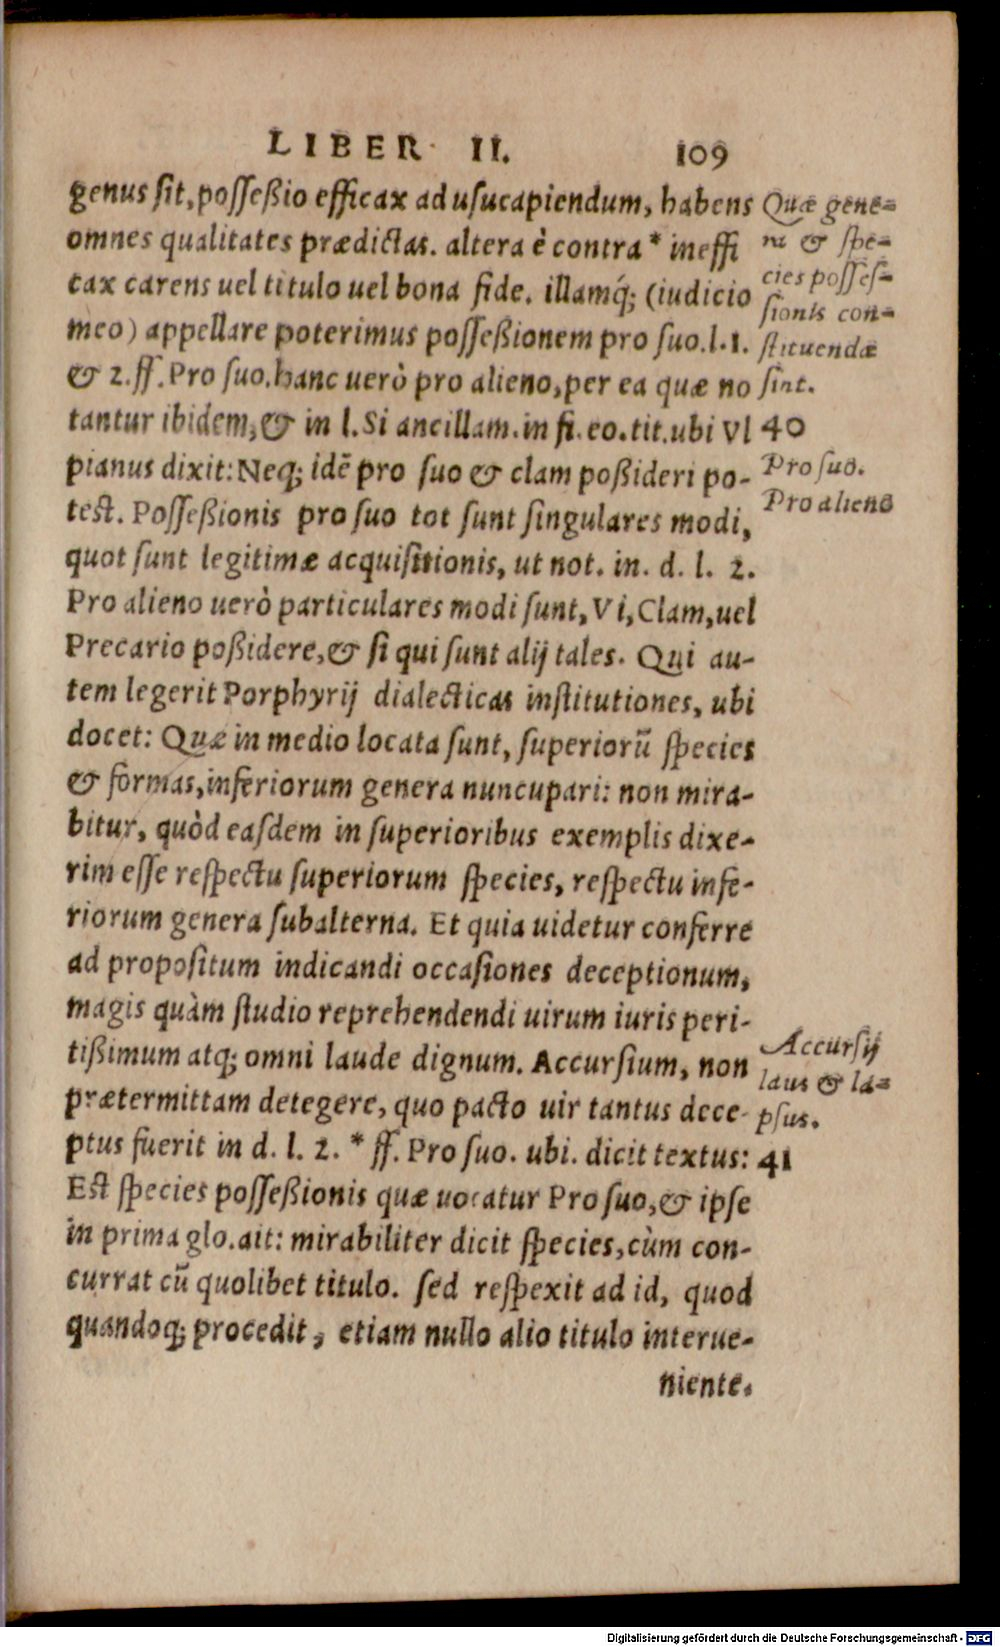 LIBER II. 109
genus sit, posseßio efficax ad usucapiendum, habens
omnes qualitates prædictas. altera è contra * ineffi
cax carens uel titulo uel bona fide. illamq́; (iudicio
meo) appellare poterimus posseßionem pro suo. l. 1.
& 2. ff. Pro suo. hanc uerò pro alieno, per ea quæ no
tantur ibidem, & in l. Si ancillam. in fi. eo. tit. ubi Vl
pianus dixit: Neq; idē pro suo & clam poßideri po-
test. Posseßionis pro suo tot sunt singulares modi,
quot sunt legitimæ acquisitionis, ut not. in. d. l. 2.
Pro alieno uerò particulares modi sunt, Vi, Clam, uel
Precario poßidere, & si qui sunt alij tales. Qui au-
tem legerit Porphyrij dialecticas institutiones, ubi
docet: Quæ in medio locata sunt, superiorū species
& formas, inferiorum genera nuncupari: non mira-
bitur, quòd easdem in superioribus exemplis dixe-
rim esse respectu superiorum species, respectu infe-
riorum genera subalterna. Et quia uidetur conferre
ad propositum indicandi occasiones deceptionum,
magis quàm studio reprehendendi uirum iuris peri-
tißimum atq; omni laude dignum. Accursium, non
prætermittam detegere, quo pacto uir tantus dece-
ptus fuerit in d. l. 2. * ff. Pro suo. ubi. dicit textus:
Est species posseßionis quæ uocatur Pro suo, & ipse
in prima glo. ait: mirabiliter dicit species, cùm con-
currat cū quolibet titulo. sed respexit ad id, quod
quandoq; procedit, etiam nullo alio titulo interue-
niente.
Quæ gene-
ra & spe-
cies posses-
sionis con-
stituendæ
sint.
40
Pro suo.
Pro alieno
Accursij
laus & la-
psus.
41
Digitalisierung gefördert durch die Deutsche Forschungsgemeinschaft - DFG